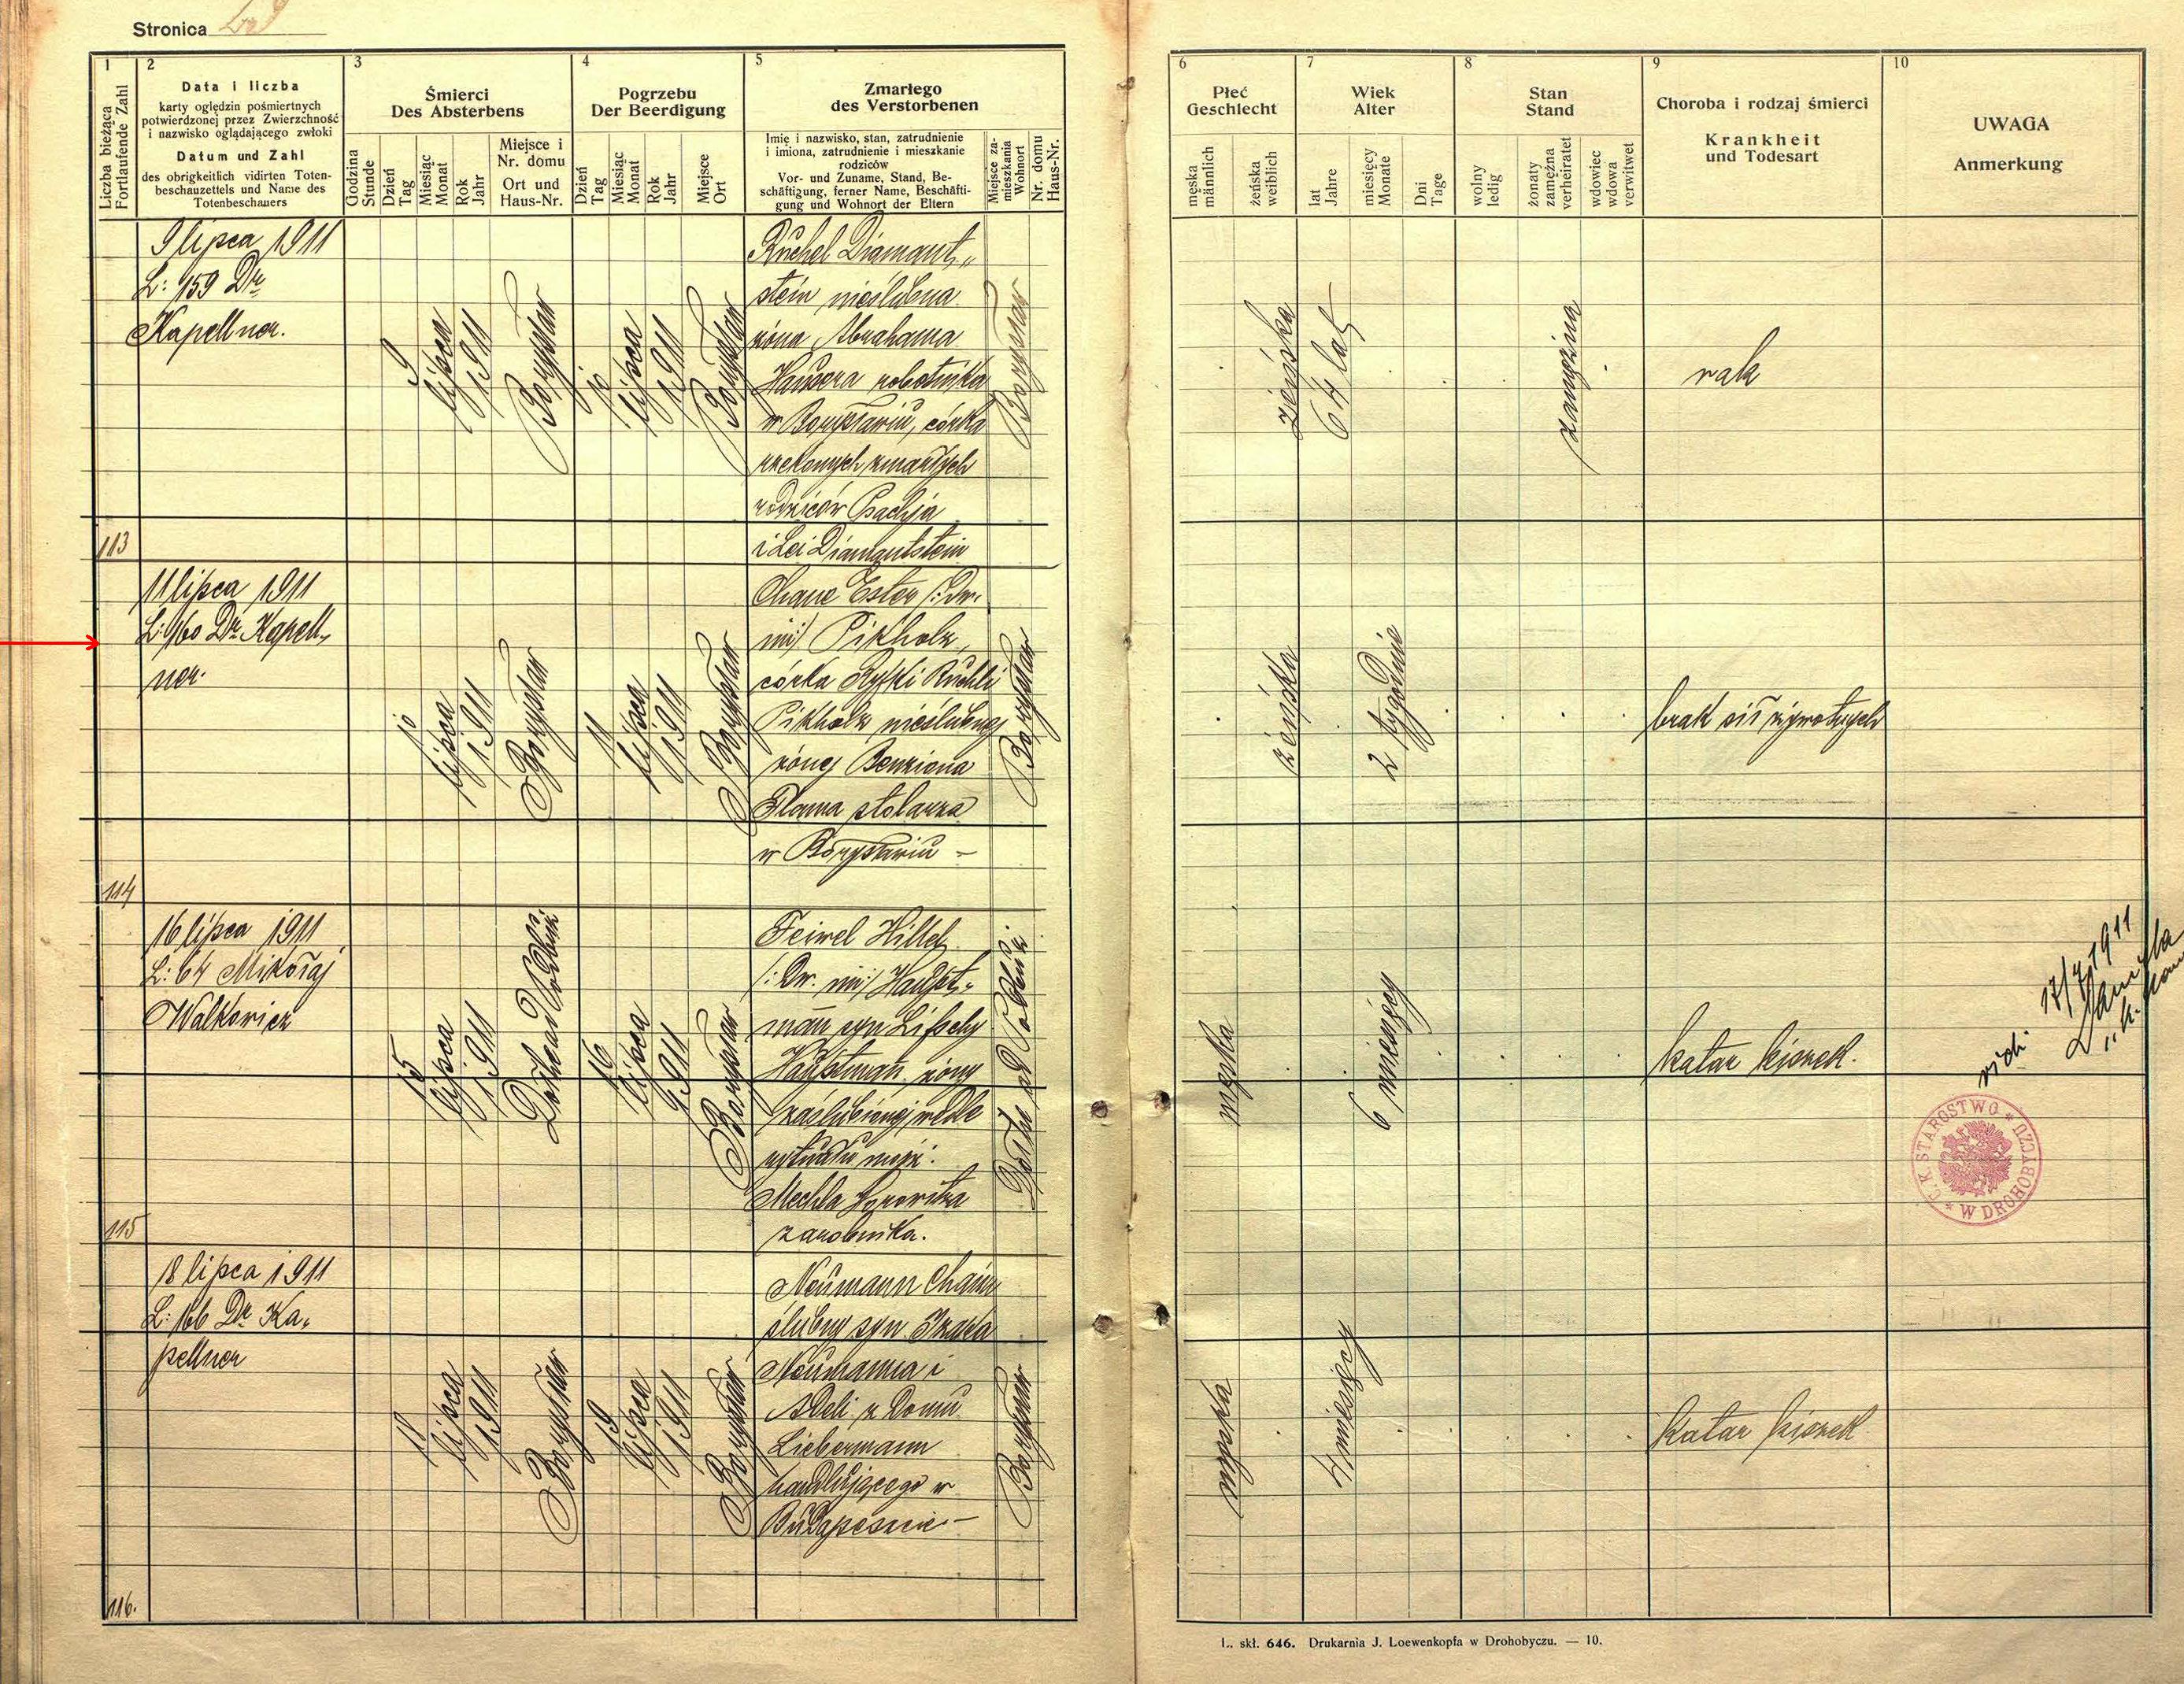 Stronica
1
Liczba bieżąca
Fortlaufende Zahl
2
Data i liczba
karty oględzin pośmiertnych
potwierdzonej przez Zwierzchność
i nazwisko oglądającego zwłoki
Datum und Zahl
des obrigkeitlich vidirten Toten-
beschauzettels und Name des
Totenbeschauers
3
Śmierci
Des Absterbens
Godzina
Stunde
Dzień
Tag
Miesiąc
Monat
Rok
Jahr
Miejsce i
Nr. domu
Ort und
Haus-Nr.
4
Pogrzebu
Der Beerdigung
Dzień
Tag
Miesiąc
Monat
Rok
Jahr
Miejsce
Ort
5
Zmarłego
des Verstorbenen
Imię i nazwisko, stan, zatrudnienie
i imiona, zatrudnienie i mieszkanie
rodziców
Vor- und Zuname, Stand, Be-
schäftigung, ferner Name, Beschäfti-
gung und Wohnort der Eltern
Miejsce za-
mieszkania
Wohnort
Nr. domu
Haus-Nr.
6
Płeć
Geschlecht
męska
männlich
żeńska
weiblich
7
Wiek
Alter
lat
Jahre
miesięcy
Monate
Dni
Tage
8
Stan
Stand
wolny
ledig
żonaty
zamężna
verheiratet
wdowiec
wdowa
verwitwet
9
Choroba i rodzaj śmierci
Krankheit
und Todesart
10
UWAGA
Anmerkung
113
9 lipca 1911
L: 159 Dr
Kapellner.
9
lipca
1911
Borysław
10
lipca
1911
Borysław
Ruchel Diamant„
stein nieślubna
żona Abrahama
Hausera robotnika
w Borysławiu, córka
rzekomych zmarłych
rodziców Psachja
i Lei Diamantstein
Borysław
żeńska
64 lat
zamężna
rak
114
11 lipca 1911
L: 160 Dr Kapell„
ner.
10
lipca
1911
Borysław
11
lipca
1911
Borysław
Chane Ester /: Dw.
im:/ Pikholz,
córka Ryfki Ruchli
Pikholz nieślubnej
żonej Benziona
Flama stolarza
w Borysławiu –
Borysław
żeńska
2 tygodnie
brak sił żywotnych
115
16 lipca 1911
L: 64 Mikołaj
Walkowicz
15
lipca
1911
16
lipca
1911
Borysław
Feiwel Hillel
/: Dw. im:/ Haupt„
man syn Lipschy
Hauptman żony
zaślubionej wedle
rytuału mojż.
Mechla Horowitza
zarobnika.
męska
6 miesięcy
katar kiszek.
vidi
17/7 1911
C. K. STAROSTWO * W DROHOBYCZU *
116.
18 lipca 1911
L: 166 Dr Ka„
pellner
18
lipca
1911
Borysław
19
lipca
1911
Borysław
Neumann Chaim
ślubny syn Izaka
Neumanna i
Adeli z domu
Liebermann
handlującego w
Budapeszcie –
Borysław
męska
4 miesięcy
katar kiszek
L. skł. 646. Drukarnia J. Loewenkopfa w Drohobyczu. — 10.